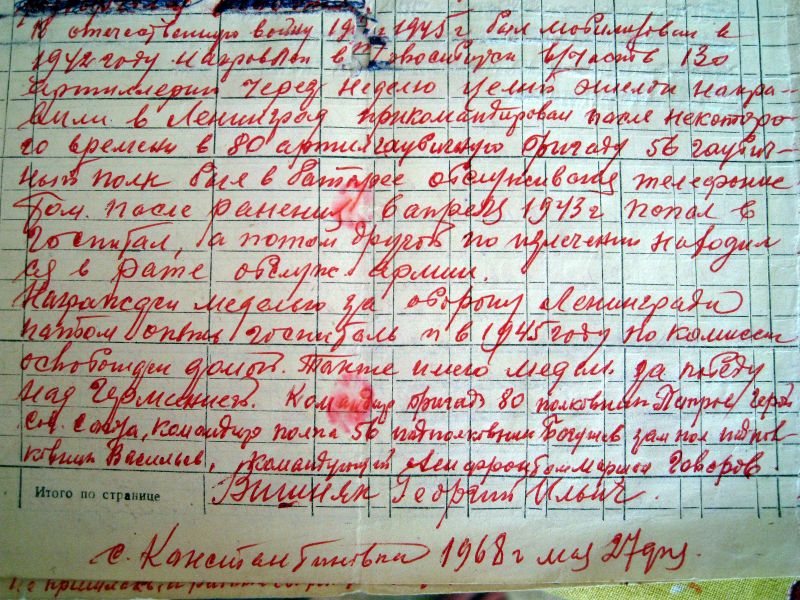 В отечественную войну 19 г 1945 г был мобилизован в
1942 году направлен в Новосибирск в часть 130
Артиллерии через неделю целый эшелон напра-
вили в Ленинград прикомандирован после некоторо-
го времени в 80 артил гаубичную бригаду 56 гаубич-
ный полк был в батарее обслуживания телефонис
том. после ранения 6 апреля 1943 г попал в
госпитал, а потом другой по излечении находил
ся в роте обслуж. армии.
Награжден медалью за оборону Ленинграда
потом опять госпиталь и в 1945 году по комиссии
освобожден домой. Также имею медаль за победу
над Германией. Командир бригады 80 полковник Петров герой
Сов. Союза, командир полка 56 подполковник Богушев зам пол подпол
ковник Васильев, командующий Ленфронтом маршал Говоров.
Итого по странице Вишняк Георгий Ильич.
с. Канстантиновка 1968 г мая 27 дня.